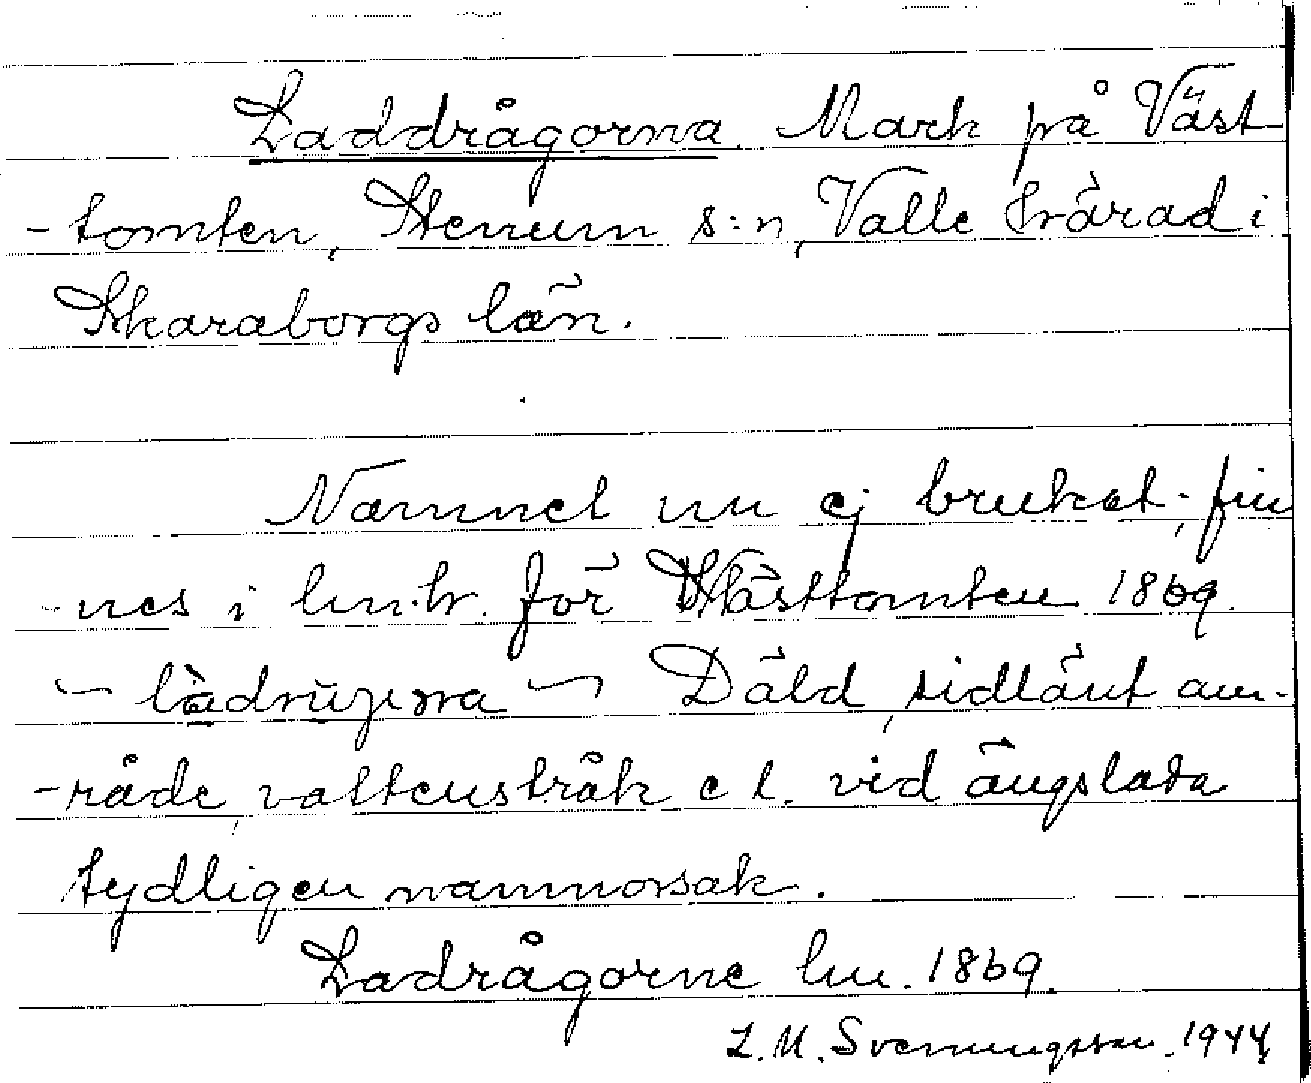 Laddrågorna. Mark på Väst
-tomten, Stenum s:n, Valle härad i
Skaraborgs län.
Namnet nu ej brukat; fin
-nes i lm.h. för Västtomten 1869.
Däld, sidlänt om-
-råde, vattenstråk e l. vid ängslada
tydligen namnorsak.
Ladrågorne lm. 1869.
L.M. Svenungsson. 1944